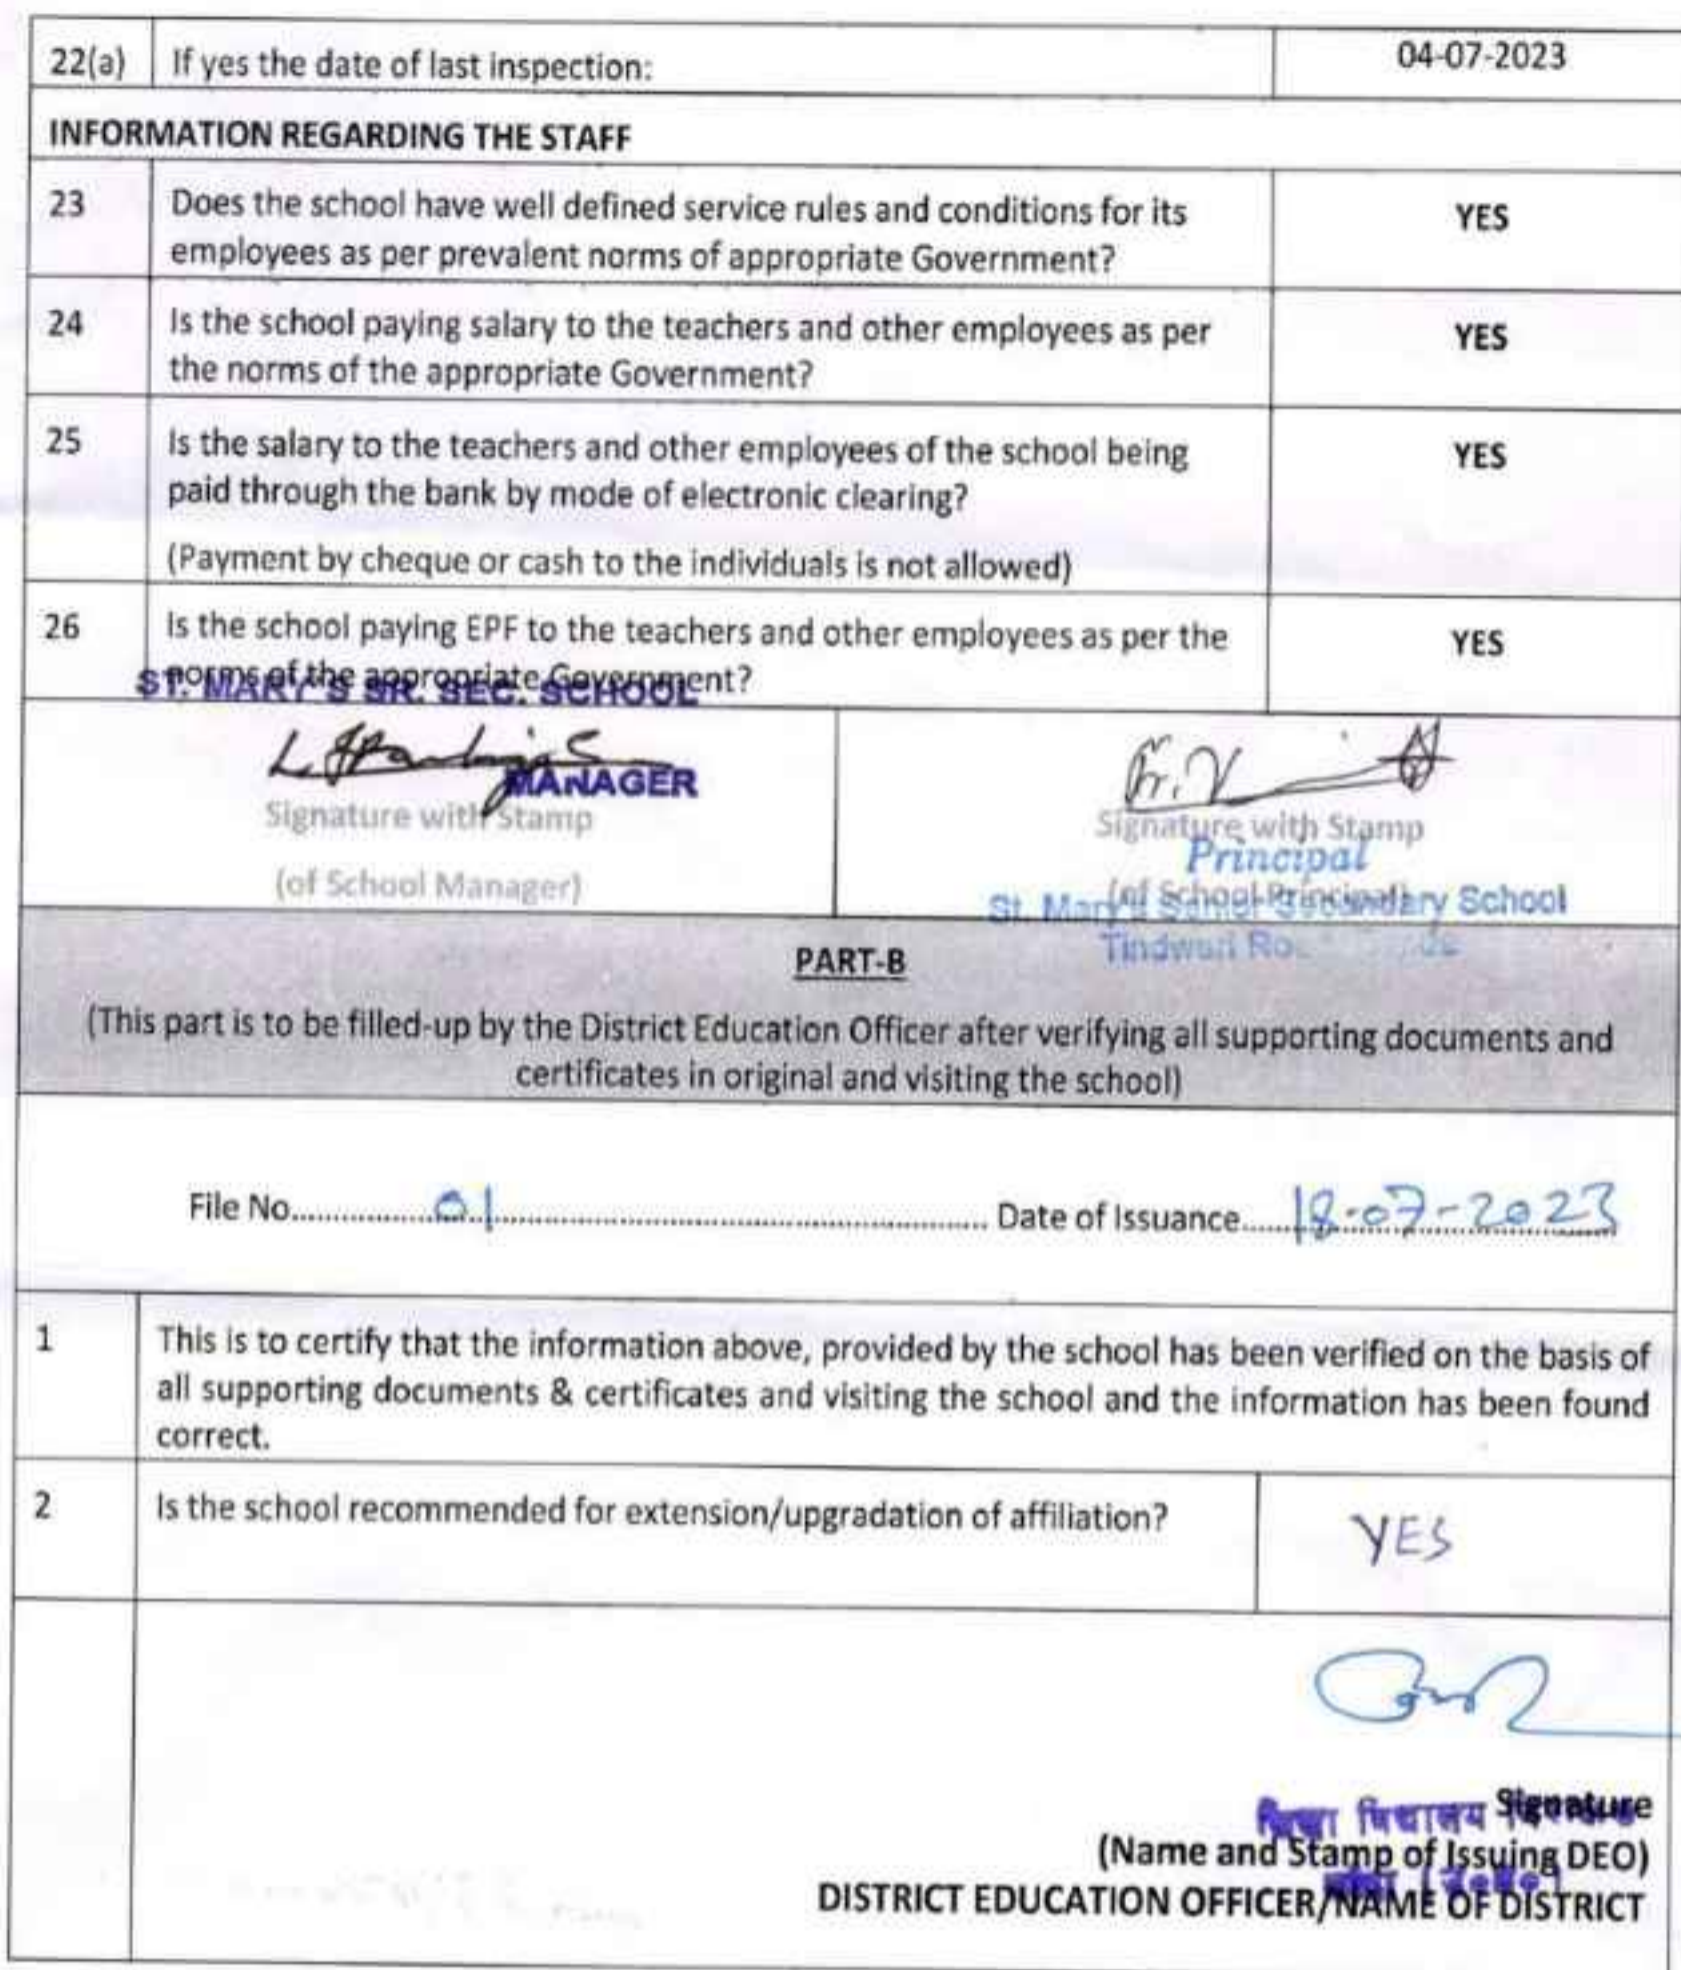 22(a) If yes the date of last inspection: 04-07-2023
INFORMATION REGARDING THE STAFF
23 Does the school have well defined service rules and conditions for its YES
employees as per prevalent norms of appropriate Government?
24 Is the school paying salary to the teachers and other employees as per YES
the norms of the appropriate Government?
25 Is the salary to the teachers and other employees of the school being YES
paid through the bank by mode of electronic clearing?
(Payment by cheque or cash to the individuals is not allowed)
26 Is the school paying EPF to the teachers and other employees as per the YES
norms of the appropriate Government?
ST. MARY'S SR. SEC. SCHOOL
MANAGER
Signature with Stamp
(of School Manager)
Fr.
Signature with Stamp
Principal
(of School Principal)
St. Mary's Senior Secondary School
Tindwari
PART-B
(This part is to be filled-up by the District Education Officer after verifying all supporting documents and
certificates in original and visiting the school)
File No. 01 Date of Issuance 18-07-2023
1 This is to certify that the information above, provided by the school has been verified on the basis of
all supporting documents & certificates and visiting the school and the information has been found
correct.
2 Is the school recommended for extension/upgradation of affiliation? YES
Signature
विद्यालय
(Name and Stamp of Issuing DEO)
DISTRICT EDUCATION OFFICER/NAME OF DISTRICT